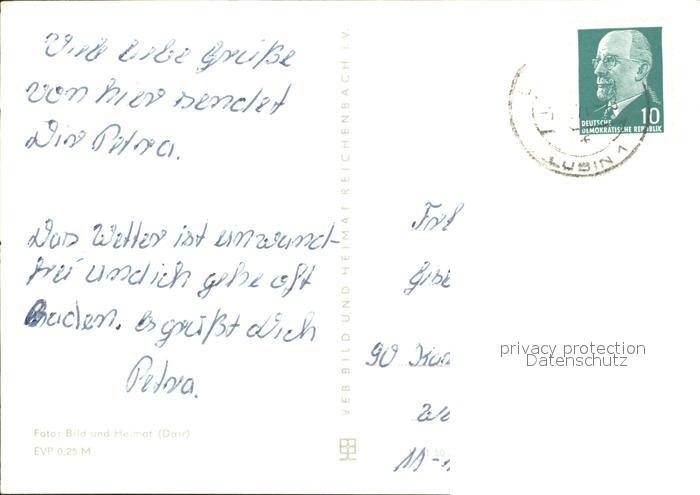 Viele liebe Grüße
von hier sendet
Dir Petra.
Das Wetter ist einwand-
frei und ich gehe oft
Baden. Es grüßt Dich
Petra.
Foto: Bild und Heimat (Darr)
EVP 0,25 M
VEB BILD UND HEIMAT REICHENBACH I.V.
10
DEUTSCHE
DEMOKRATISCHE REPUBLIK
LUBIN 1
90
11-1
privacy protection
Datenschutz